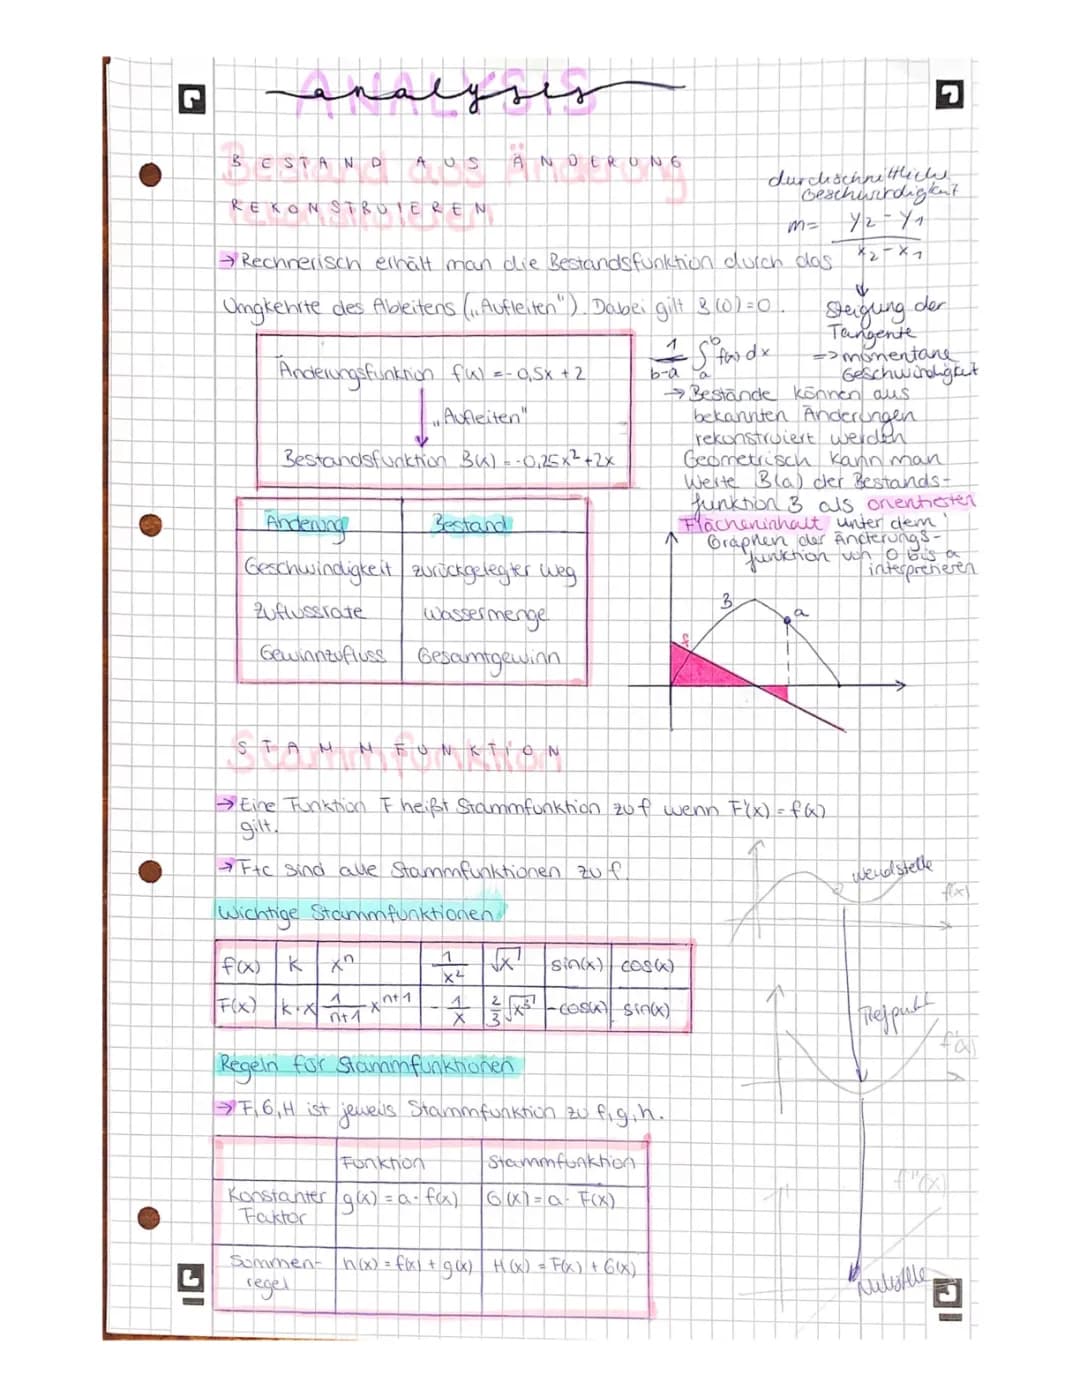 analysis
BESTAND AUS ÄNDERUNG
REKONSTRUIEREN
durchschnittliche
Geschwindigkeit
m= y₂-y₁
x₂-x₁
→ Rechnerisch erhält man die Bestandsfunktion durch das
Umgkehrte des Ableitens („Aufleiten"). Dabei gilt B(0)=0.
Steigung der
Tangente
=> momentane
Geschwindigkeit
1/(b-a) ∫ₐᵇ f(x) dx
Änderungsfunktion f(x) = -0,5x +2
„Aufleiten"
Bestandsfunktion B(x) = -0,25x²+2x
→ Bestände können aus
bekannten Änderungen
rekonstruiert werden
Geometrisch kann man
Werte B(a) der Bestands-
funktion B als orientierten
Flächeninhalt unter dem
Graphen der Änderungs-
funktion von 0 bis a
interpretieren
Änderung Bestand
Geschwindigkeit zurückgelegter Weg
Zuflussrate Wassermenge
Gewinnzufluss Gesamtgewinn
B
a
f
STAMMFUNKTION
→ Eine Funktion F heißt Stammfunktion zu f wenn F'(x) = f(x)
gilt.
→ F+c sind alle Stammfunktionen zu f.
Wichtige Stammfunktionen
f(x) k xⁿ 1/x² √x sin(x) cos(x)
F(x) k·x 1/(n+1) xⁿ⁺¹ -1/x 2/3 √x³ -cos(x) sin(x)
Wendstelle
f(x)
Tiefpunkt
f'(x)
f''(x)
Nullstelle
Regeln für Stammfunktionen
→ F, G, H ist jeweils Stammfunktion zu f, g, h.
Funktion Stammfunktion
Konstanter g(x) = a · f(x) G(x) = a · F(x)
Faktor
Summen- h(x) = f(x) + g(x) H(x) = F(x) + G(x)
regel